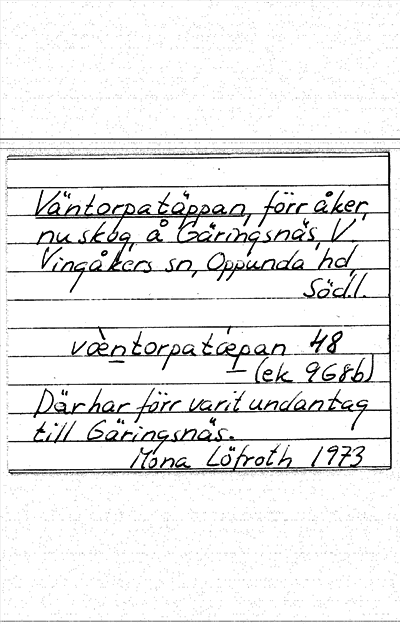 Väntorpatäppan, förr åker,
nu skog, å Gäringsnäs, V.
Vingåkers sn, Oppunda hd,
Södl.
væ̀ntorpatæpan 48
(ek 9G8b)
Där har förr varit undantag
till Gäringsnäs.
Mona Löfroth 1973